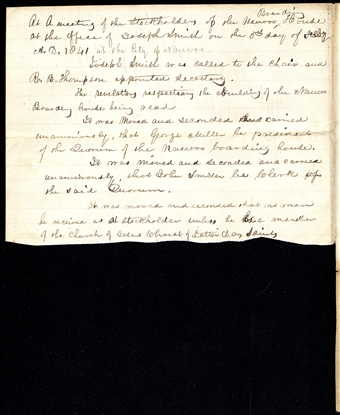 At A meeting of the stockholders of the Nauvoo Boarding House
at the office of Joseph Smith on the 5th day of Feby
A.D. 1841 at the City of Nauvoo.
Joseph Smith was called to the Chair and
R B. Thompson appointed Secretary.
The revelation respecting the building of the Nauvoo
Boarding house being read
It was Moved and Seconded and carried
unanimously, that George Miller be president
of the Quorum of the Nauvoo boarding house.
It was Moved and Seconded and carried
unanimously, that John Snider be Clerk of
the said Quorum.
It was moved and seconded that no man
be received as a Stockholder unless he is a member
of the Church of Jesus Christ of Latter Day Saints